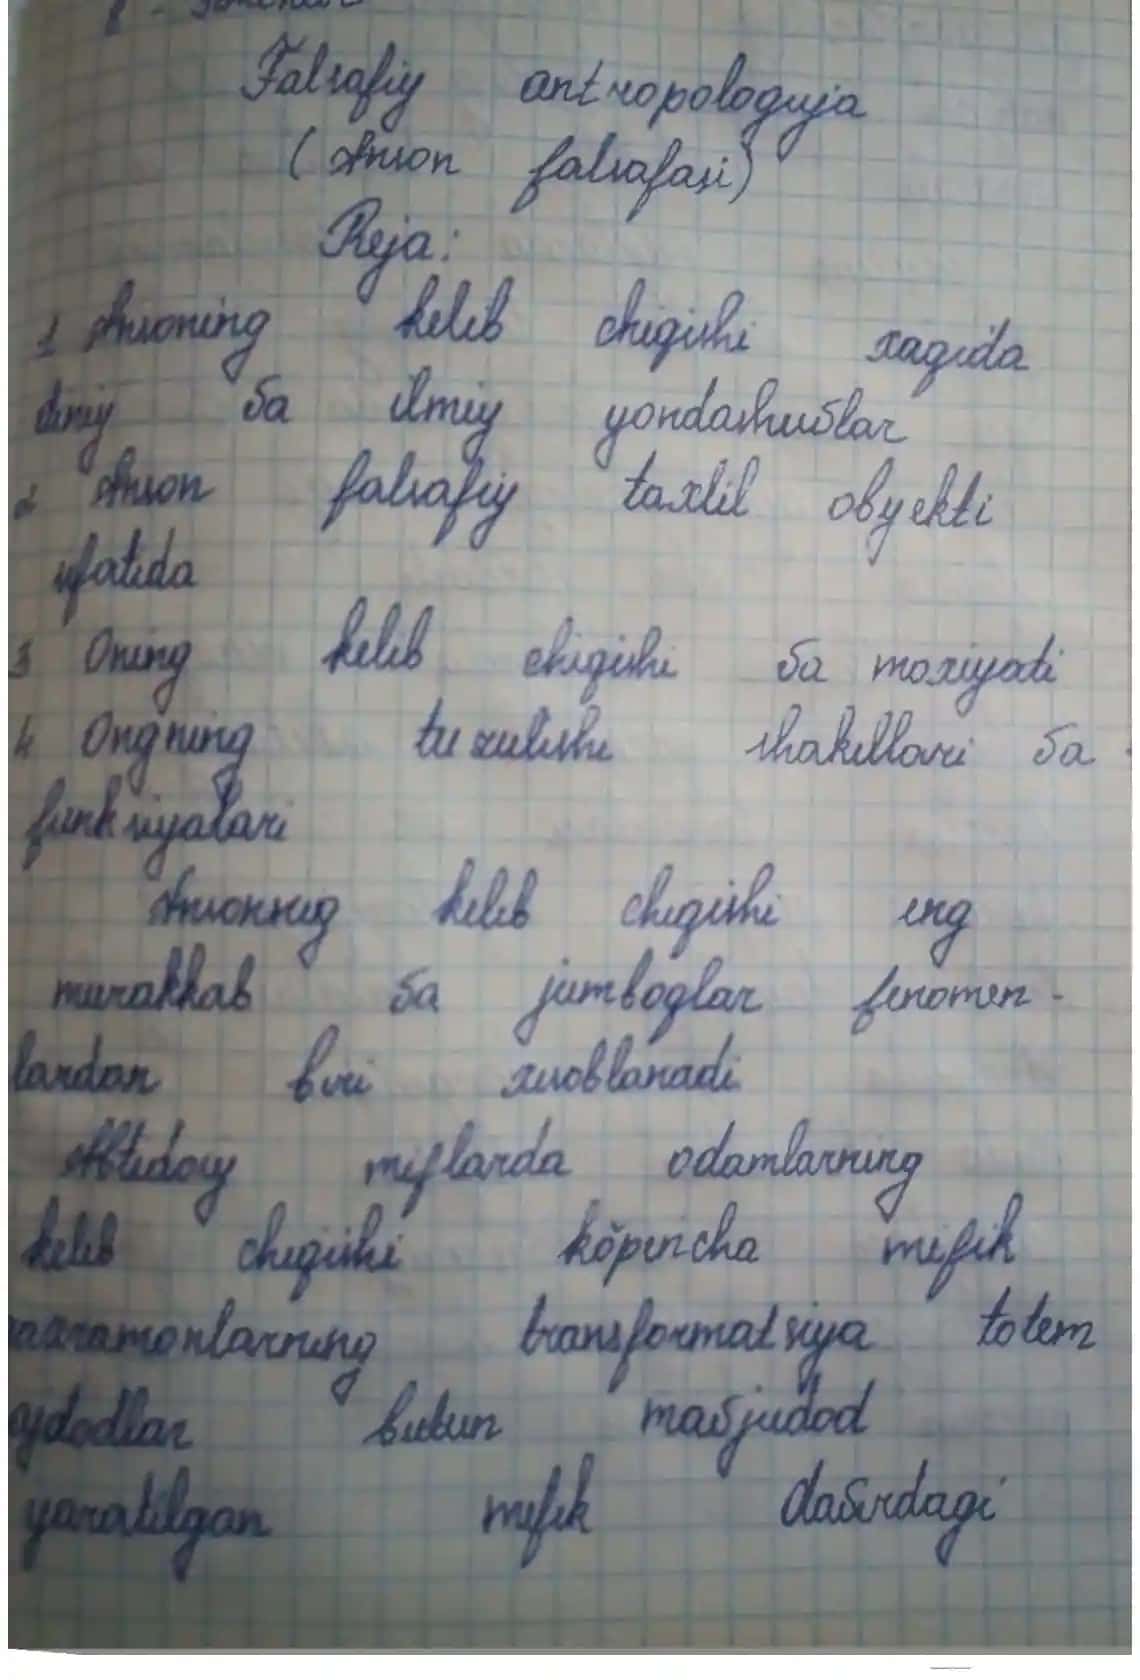 Falsafiy antropologiya
(Inson falsafasi)
Reja:
1 Insoning kelib chiqishi xaqida
diniy va ilmiy yondashuvlar
2 Inson falsafiy taxlil obyekti
sifatida
3 Oning kelib chiqishi va moxiyati
4 Ongning tuzulishi shakillari va
funksiyalari
Insonnig kelib chiqishi eng
murakkab va jumboqlar fenomen-
lardan biri xisoblanadi
Ibtidoiy miflarda odamlarning
kelib chiqishi ko'pincha mifik
qaxramonlarning transformatsiya totem
ajdodlar butun mavjudod
yaratilgan mifik davirdagi